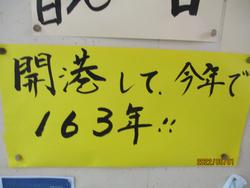 開港して、今年で
163年!!
2022/06/01